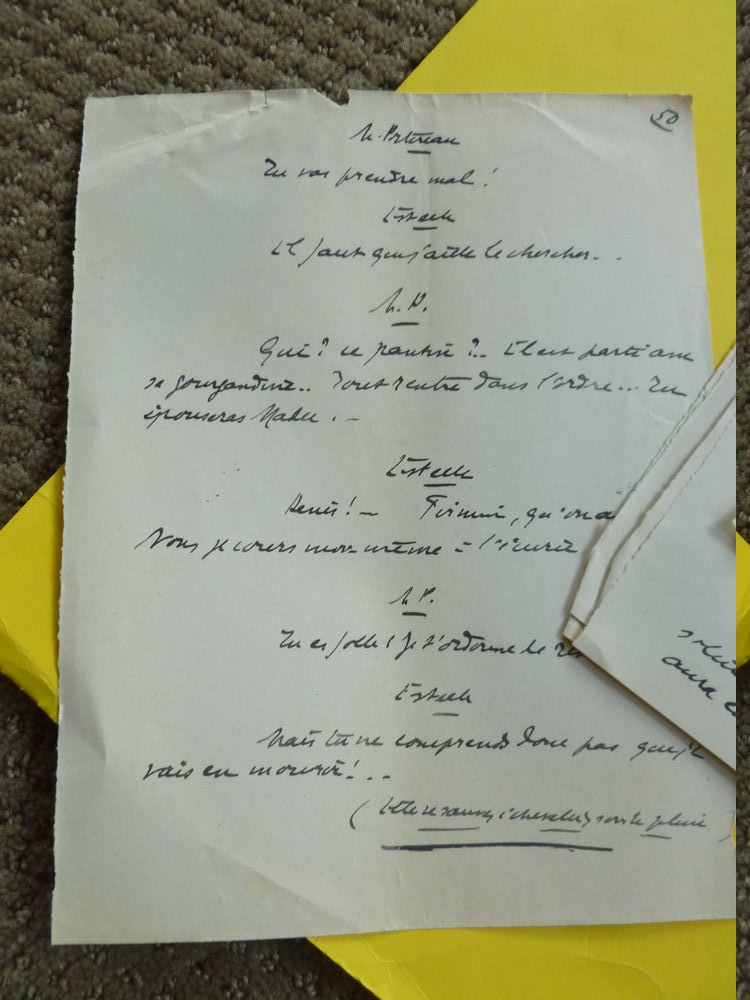 50
Tu vas prendre mal !
Estelle
Il faut que j'aille le chercher. .
M. P.
Qui ? ce pantin ?.. Il est parti avec
sa gourgandine.. Tout rentre dans l'ordre... Tu
épouseras . -
Estelle
René ! - Firmin, qu'on a
Non, je cours moi-même à l'écurie
M. P.
Tu es folle ! Je t'ordonne de
Estelle
Mais tu ne comprends donc pas que je
vais en mourir ! . .
( Elle se sauve, échevelée, sous la pluie )
aura